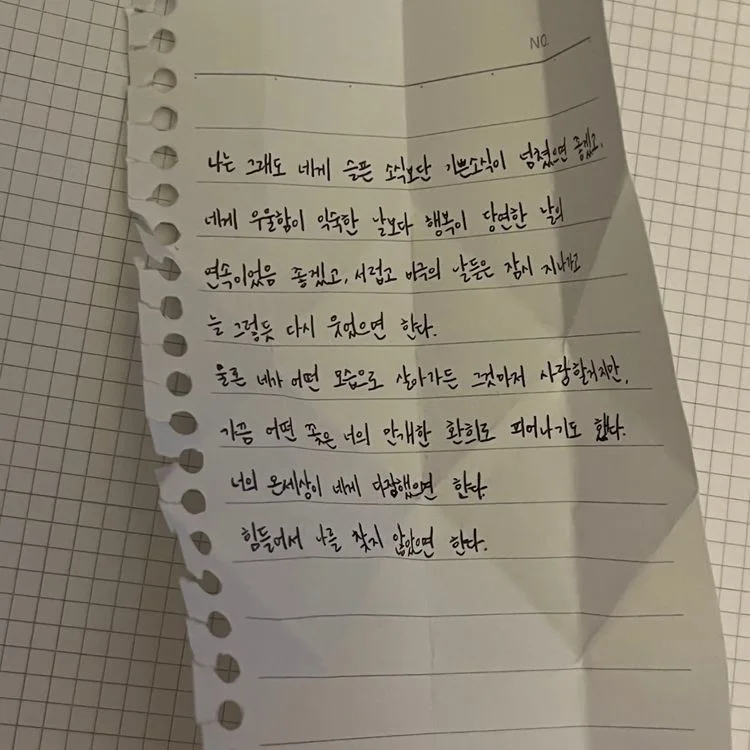 NO.
나는 그래도 네게 슬픈 소식보단 기쁜소식이 넘쳤으면 좋겠고,
네게 우울함이 익숙한 날보다 행복이 당연한 날의
연속이었음 좋겠고, 서럽고 비극의 날들은 잠시 지나가고
늘 그렇듯 다시 웃었으면 한다.
물론 네가 어떤 모습으로 살아가든 그것마저 사랑할거지만,
가끔 어떤 꽃은 너의 만개한 환희로 피어나기도 했다.
너의 온세상이 네게 다정했으면 한다.
힘들어서 나를 찾지 않았으면 한다.